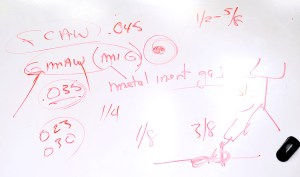 FCAW .045
1/2-5/8
GMAW (MIG)
metal inert gas
.035
1/4
023
030
1/8
3/8